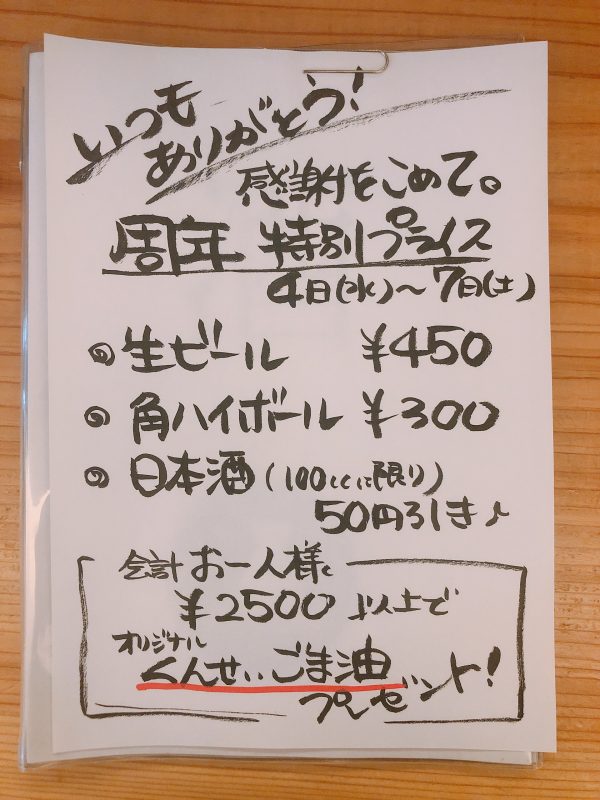 いつも
ありがとう!
感謝をこめて。
周年 特別プライス
4日(水)〜7日(土)
生ビール ¥450
角ハイボール ¥300
日本酒(100ccに限り)
50円引き♪
会計 お一人様
¥2500 以上で
オリジナル
くんせいごま油
プレゼント!